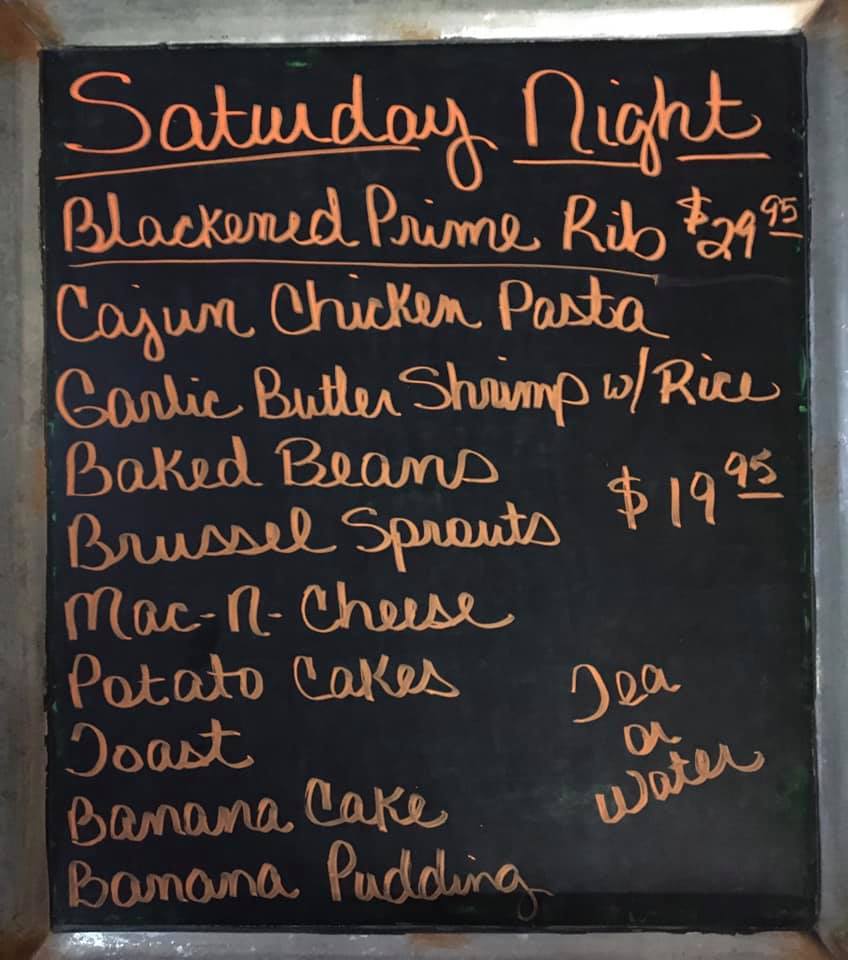 Saturday Night
Blackened Prime Rib $29.95
Cajun Chicken Pasta
Garlic Butter Shrimp w/ Rice
Baked Beans
$19.95
Brussel Sprouts
Mac-N-Cheese
Potato Cakes
Toast
Banana Cake
Banana Pudding
Tea
or
Water